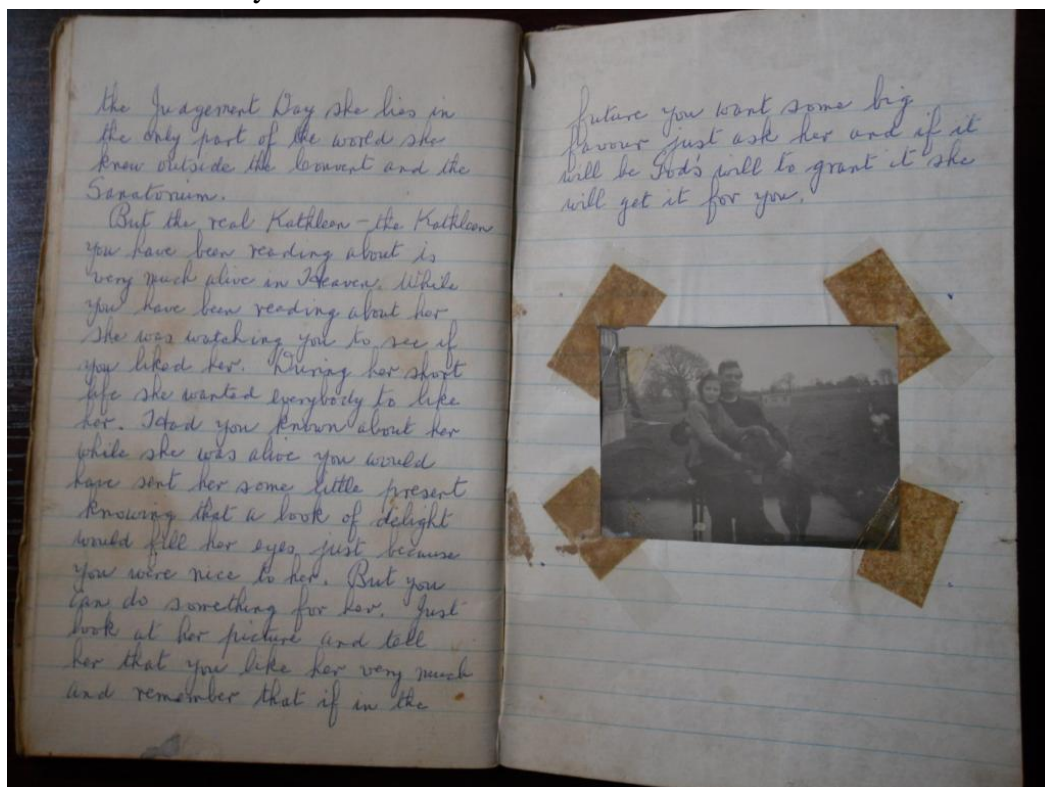 the Judgement Day she lies in
the only part of the world she
knew outside the Convent and the
Sanatorium.
But the real Kathleen – the Kathleen
you have been reading about is
very much alive in Heaven. While
you have been reading about her
she was watching you to see if
you liked her. During her short
life she wanted everybody to like
her. Had you known about her
while she was alive you would
have sent her some little present
knowing that a look of delight
would fill her eyes just because
you were nice to her. But you
can do something for her. Just
look at her picture and tell
her that you like her very much
and remember that if in the
future you want some big
favour just ask her and if it
will be God's will to grant it she
will get it for you.